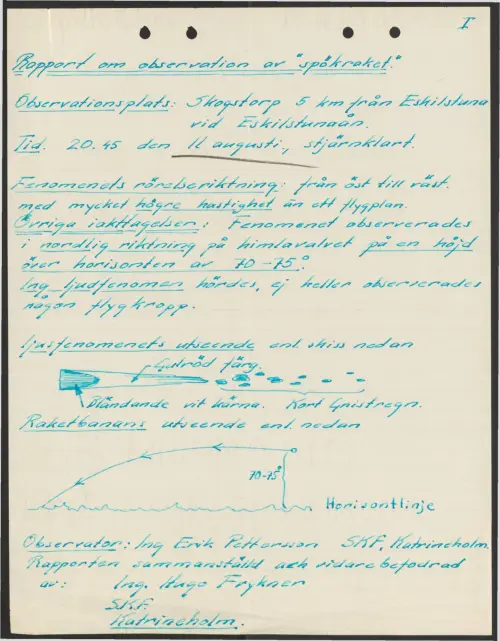 I
Rapport om observation av "spökraket."
Observationsplats: Skogstorp 5 km från Eskilstuna
vid Eskilstunaån.
Tid. 20.45 den 11 augusti, stjärnklart.
Fenomenets rörelseriktning: från öst till väst.
med mycket högre hastighet än ett flygplan.
Övriga iakttagelser: Fenomenet observerades
i nordlig riktning på himlavalvet på en höjd
över horisonten av 70-75°.
Ing ljudfenomen hördes, ej heller observerades
någon flygkropp.
Ljusfenomenets utseende enl. skiss nedan
Gulröd färg.
Bländande vit kärna. Kort Gnistregn.
Raketbanans utseende enl. nedan
70-75°
Horisontlinje
Observatör: Ing Erik Pettersson SKF, Katrineholm.
Rapporten sammanställd och vidarebefodrad
av: Ing. Hugo Frykner
SKF.
Katrineholm.